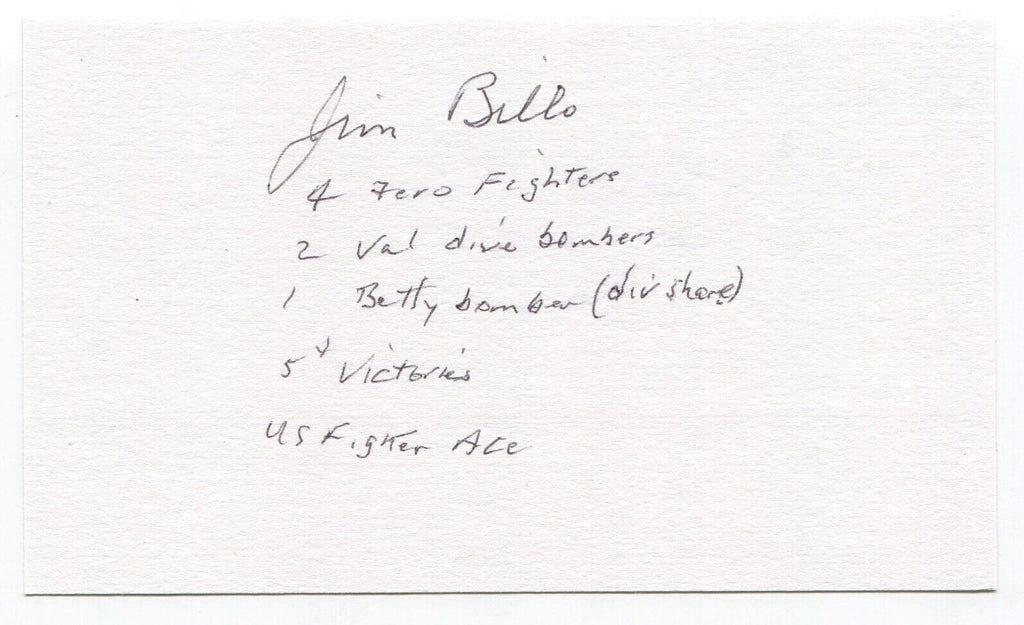 Jim Billo
4 Zero Fighters
2 Val dive bombers
1 Betty bomber (div share)
5 Victories
US Figter Ace